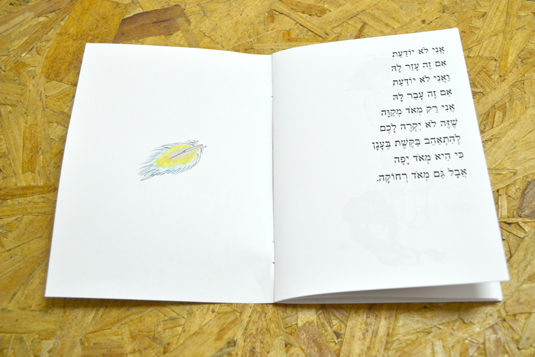 אֲנִי לֹא יוֹדַעַת
אִם זֶה עָזַר לָהּ
וַאֲנִי לֹא יוֹדַעַת
אִם זֶה עָבַר לָהּ
אֲנִי רַק מְאֹד מְקַוָּה
שֶׁזֶּה לֹא יִקְרֶה לָכֶם
לְהִתְאַהֵב בַּקֶּשֶׁת בֶּעָנָן
כִּי הִיא מְאֹד יָפָה
אֲבָל גַּם מְאֹד רְחוֹקָה.